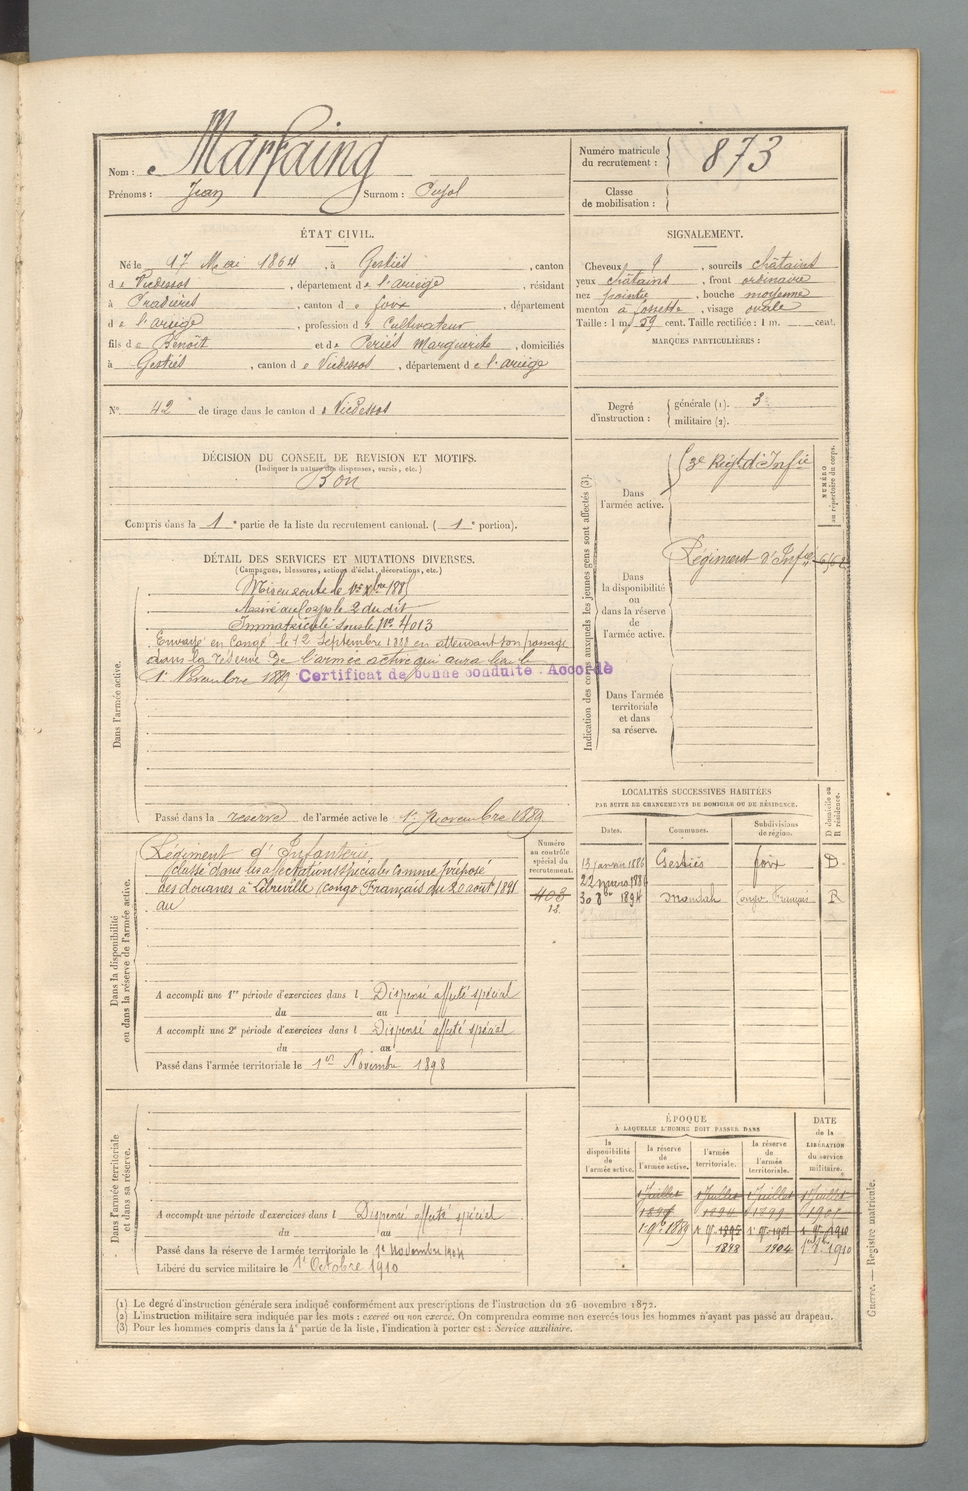 Nom : Marfaing
Prénoms : Jean Surnom : Pujol
Numéro matricule du recrutement : 873
Classe de mobilisation :
ÉTAT CIVIL.
Né le 17 Mai 1864, à Gestiès, canton
de Vicdessos, département de l'ariège, résidant
à Pradières, canton de foix, département
de l'ariège, profession de Cultivateur
fils de Benoît et de Periès Marguerite, domiciliés
à Gestiès, canton de Vicdessos, département de l'ariège
N° 42 de tirage dans le canton de Vicdessos
SIGNALEMENT.
Cheveux, sourcils châtains
yeux châtains, front ordinaire
nez pointu, bouche moyenne
menton à fossette, visage ovale
Taille : 1 m. 59 cent. Taille rectifiée : 1 m. cent.
MARQUES PARTICULIÈRES :
Degré d'instruction : générale (1). 3
militaire (2).
DÉCISION DU CONSEIL DE REVISION ET MOTIFS.
(Indiquer la nature des dispenses, sursis, etc.)
Bon
Compris dans la 1e partie de la liste du recrutement cantonal. (1e portion).
DÉTAIL DES SERVICES ET MUTATIONS DIVERSES.
(Campagnes, blessures, actions d'éclat, décorations, etc.)
Dans l'armée active.
Mis en route le 1er Xbre 1885
Arrivé au Corps le 2 du dit
Immatriculé sous le N° 4013
Envoyé en Congé le 12 Septembre 1888 en attendant son passage
dans la réserve de l'armée active qui aura lieu le
1er Novembre 1889 Certificat de bonne conduite Accordé
Passé dans la réserve de l'armée active le 1er Novembre 1889
Indication des corps auxquels les jeunes gens sont affectés (3).
NUMÉRO au répertoire du corps.
Dans l'armée active.
3e Régt d'Infie
Dans la disponibilité ou dans la réserve de l'armée active.
Régiment d'Infie
Dans l'armée territoriale et dans sa réserve.
LOCALITÉS SUCCESSIVES HABITÉES
PAR SUITE DE CHANGEMENTS DE DOMICILE OU DE RÉSIDENCE.
Dates. Communes. Subdivisions de région. D domicile ou R résidence.
13 janvier 1886 Gestiès foix D
22 mars 1886
30 8bre 1894 Mondah Congo Français R
Dans la disponibilité ou dans la réserve de l'armée active.
Numéro au contrôle spécial du recrutement.
Régiment d'Infanterie
classé dans les affectations spéciales comme préposé
des douanes à Libreville (congo Français) du 20 août 1891
au
408
12.
A accompli une 1re période d'exercices dans l Dispensé affecté spécial
du au
A accompli une 2e période d'exercices dans l Dispensé affecté spécial
du au
Passé dans l'armée territoriale le 1er Novembre 1898
Dans l'armée territoriale et dans sa réserve.
A accompli une période d'exercices dans l Dispensé affecté spécial
du au
Passé dans la réserve de l'armée territoriale le 1er Novembre 1904
Libéré du service militaire le 1er Octobre 1910
ÉPOQUE
À LAQUELLE L'HOMME DOIT PASSER DANS
la disponibilité de l'armée active. la réserve de l'armée active. l'armée territoriale. la réserve de l'armée territoriale. DATE de la LIBÉRATION du service militaire.
1 Juillet 1 Juillet 1 Juillet 1 Juillet
1 9bre 1889
1898 1904 1910
(1) Le degré d'instruction générale sera indiqué conformément aux prescriptions de l'instruction du 26 novembre 1872.
(2) L'instruction militaire sera indiquée par les mots : exercé ou non exercé. On comprendra comme non exercés tous les hommes n'ayant pas passé au drapeau.
(3) Pour les hommes compris dans la 4e partie de la liste, l'indication à porter est : Service auxiliaire.
Guerre. — Registre matricule.